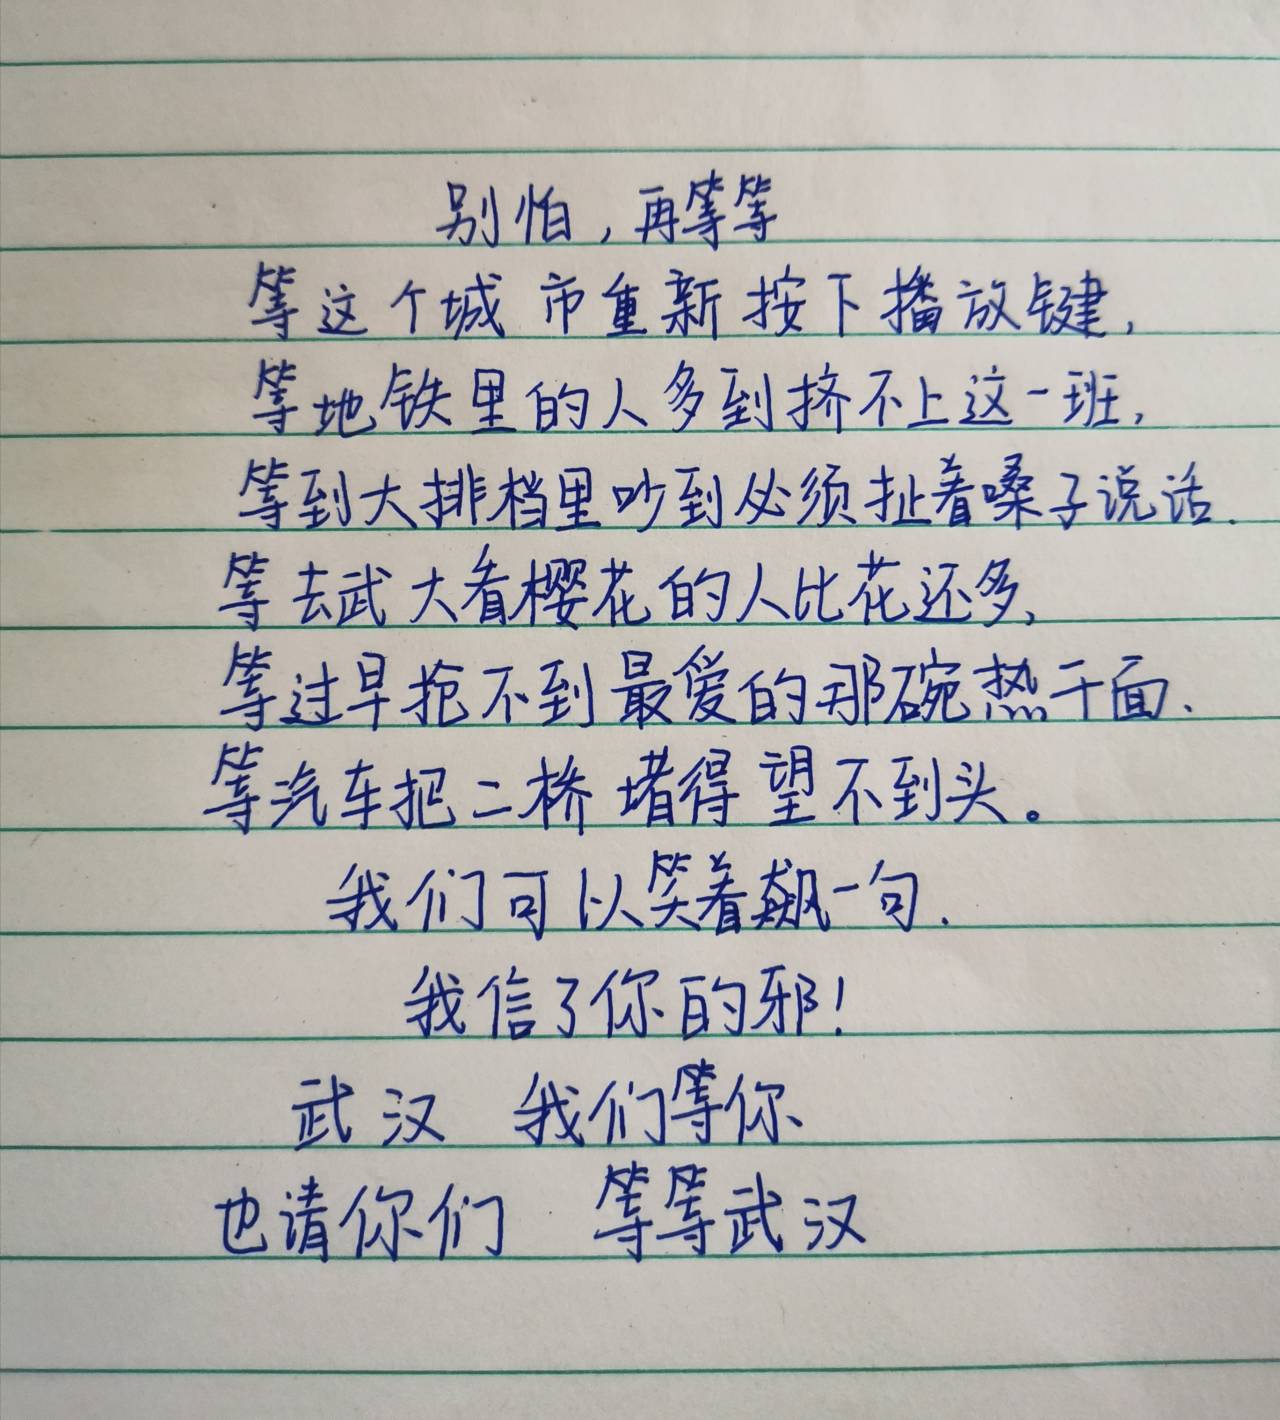 别怕,再等等
等这个城市重新按下播放键,
等地铁里的人多到挤不上这一班,
等到大排档里吵到必须扯着嗓子说话.
等去武大看樱花的人比花还多,
等过早抢不到最爱的那碗热干面.
等汽车把二桥堵得望不到头。
我们可以笑着飙一句.
我信了你的邪!
武汉 我们等你
也请你们 等等武汉